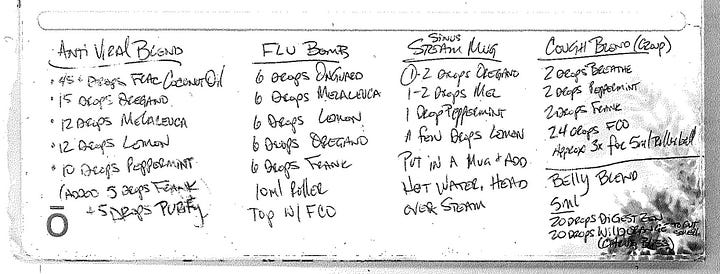 ANTI VIRAL BLEND
• 45+ DROPS FRAC COCONUT OIL
• 15 DROPS OREGANO
• 12 DROPS MELALEUCA
• 12 DROPS LEMON
• 10 DROPS PEPPERMINT
(ADDED 5 DROPS FRANK)
+5 DROPS PURIFY
FLU BOMB
6 DROPS ONGUARD
6 DROPS MELALEUCA
6 DROPS LEMON
6 DROPS OREGANO
6 DROPS FRANK
10ml ROLLER
TOP W/ FCO
SINUS
STEAM MUG
1-2 DROPS OREGANO
1-2 DROPS MEL
1 DROP PEPPERMINT
A FEW DROPS LEMON
PUT IN A MUG + ADD
HOT WATER, HEAD
OVER STEAM
COUGH BLEND (CROUP)
2 DROPS BREATHE
2 DROPS PEPPERMINT
2 DROPS FRANK
24 DROPS FCO
APPROX 3x FOR 5ml ROLLERBALL
BELLY BLEND
5ml
20 DROPS DIGESTZEN
20 DROPS WILD ORANGE TO CUT SMELL